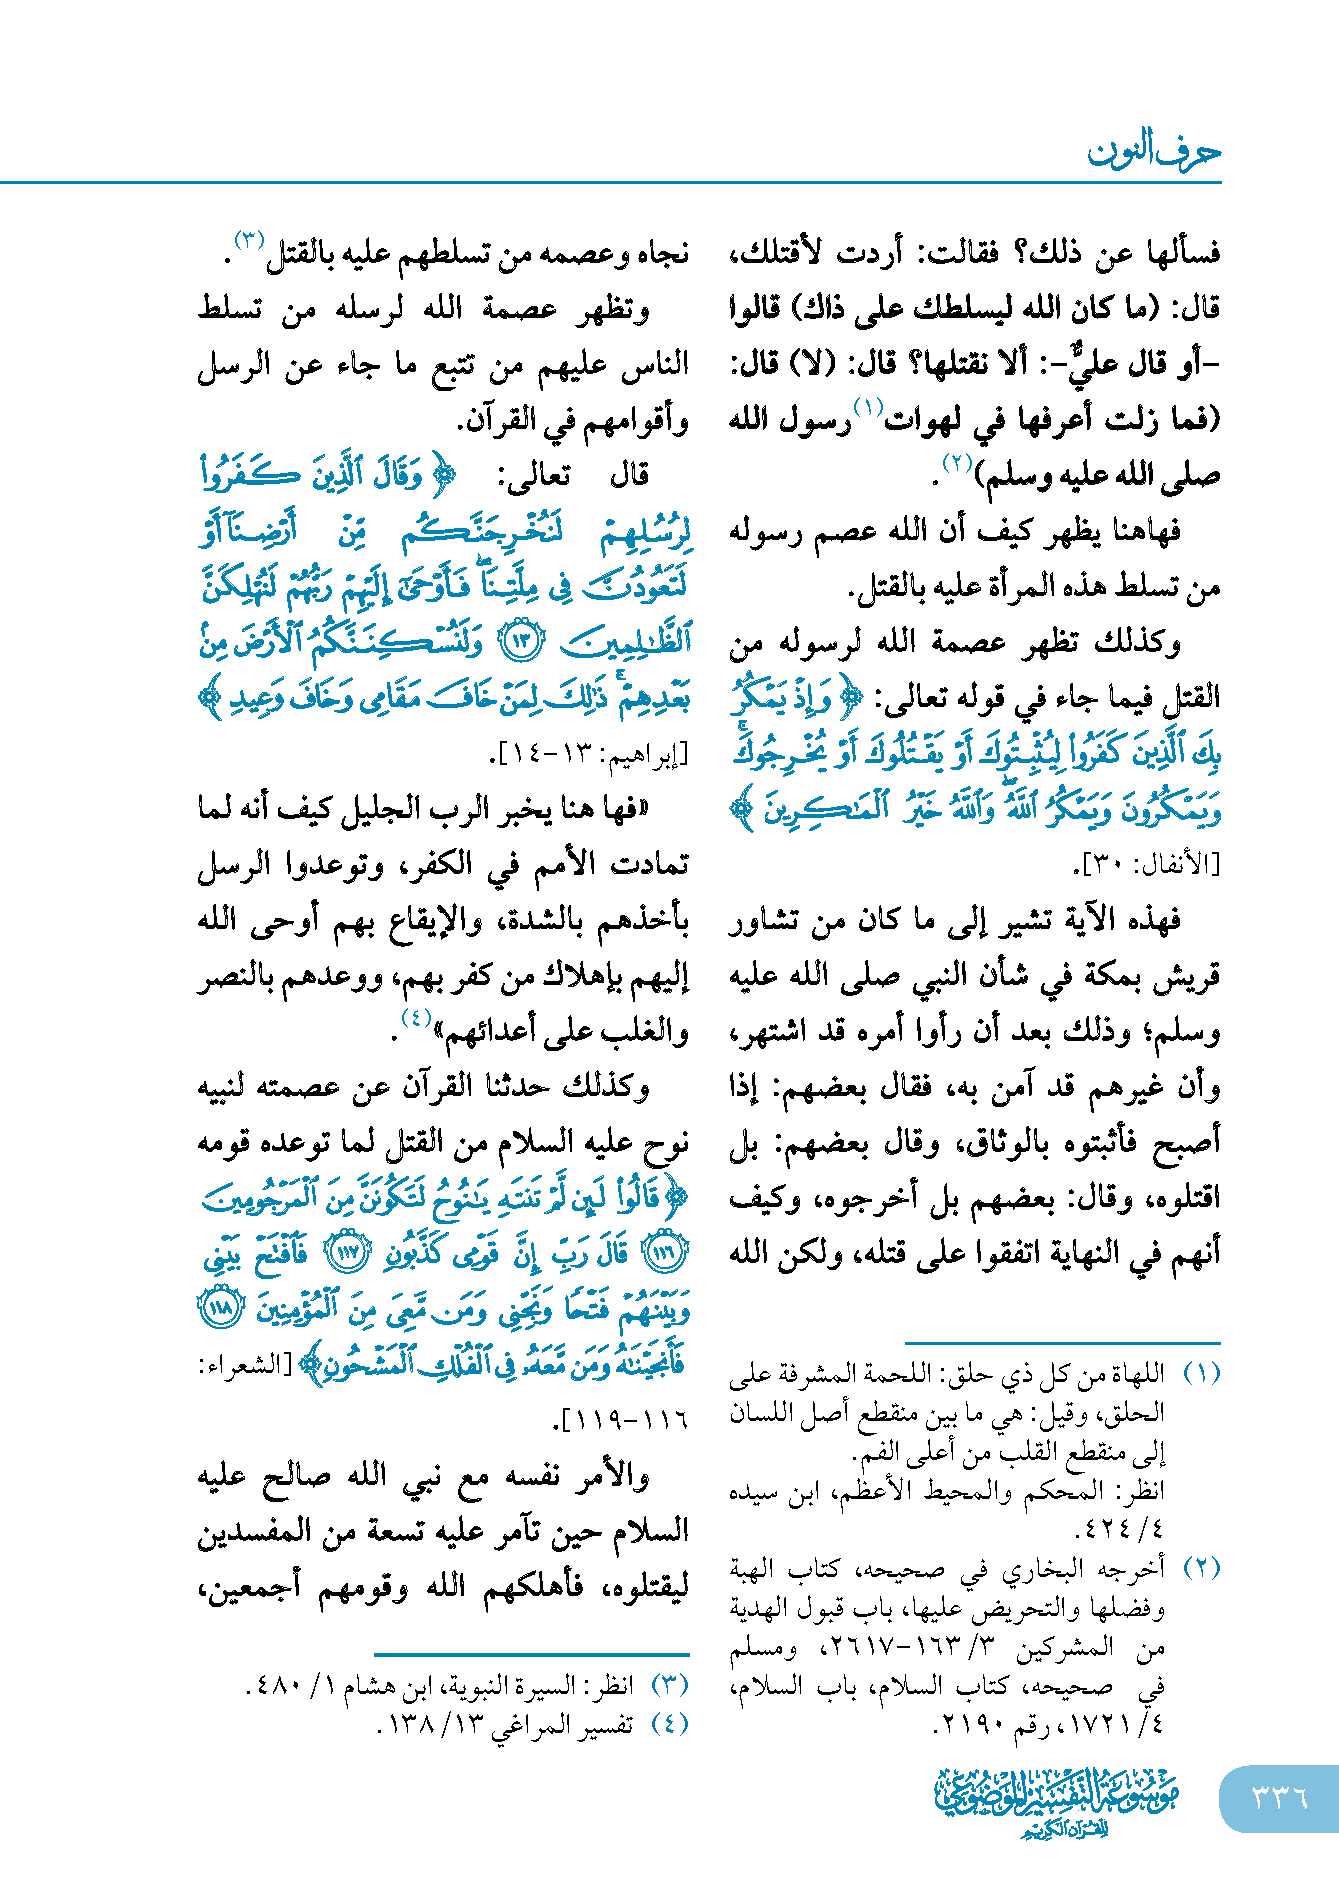 حرف النون
فسألها عن ذلك؟ فقالت: أردت لأقتلك،
قال: (ما كان الله ليسلطك على ذاك) قالوا
-أو قال عليٌّ-: ألا نقتلها؟ قال: (لا) قال:
(فما زلت أعرفها في لهوات(١) رسول الله
صلى الله عليه وسلم)(٢).
فهاهنا يظهر كيف أن الله عصم رسوله
من تسلط هذه المرأة عليه بالقتل.
وكذلك تظهر عصمة الله لرسوله من
القتل فيما جاء في قوله تعالى: ﴿ وَإِذْ يَمْكُرُ
بِكَ الَّذِينَ كَفَرُوا۟ لِيُثْبِتُوكَ أَوْ يَقْتُلُوكَ أَوْ يُخْرِجُوكَ ۚ
وَيَمْكُرُونَ وَيَمْكُرُ ٱللَّهُ ۖ وَٱللَّهُ خَيْرُ ٱلْمَـٰكِرِينَ ﴾
[الأنفال: ٣٠].
فهذه الآية تشير إلى ما كان من تشاور
قريش بمكة في شأن النبي صلى الله عليه
وسلم؛ وذلك بعد أن رأوا أمره قد اشتهر،
وأن غيرهم قد آمن به، فقال بعضهم: إذا
أصبح فأثبتوه بالوثاق، وقال بعضهم: بل
اقتلوه، وقال: بعضهم بل أخرجوه، وكيف
أنهم في النهاية اتفقوا على قتله، ولكن الله
(١) اللهاة من كل ذي حلق: اللحمة المشرفة على
الحلق، وقيل: هي ما بين منقطع أصل اللسان
إلى منقطع القلب من أعلى الفم.
انظر: المحكم والمحيط الأعظم، ابن سيده
٤/ ٤٢٤.
(٢) أخرجه البخاري في صحيحه، كتاب الهبة
وفضلها والتحريض عليها، باب قبول الهدية
من المشركين ٣/ ١٦٣-٢٦١٧، ومسلم
في صحيحه، كتاب السلام، باب السلام،
٤/ ١٧٢١، رقم ٢١٩٠.
نجاه وعصمه من تسلطهم عليه بالقتل(٣).
وتظهر عصمة الله لرسله من تسلط
الناس عليهم من تتبع ما جاء عن الرسل
وأقوامهم في القرآن.
قال تعالى: ﴿ وَقَالَ ٱلَّذِينَ كَفَرُوا۟
لِرُسُلِهِمْ لَنُخْرِجَنَّكُم مِّنْ أَرْضِنَآ أَوْ
لَتَعُودُنَّ فِى مِلَّتِنَا ۖ فَأَوْحَىٰٓ إِلَيْهِمْ رَبُّهُمْ لَنُهْلِكَنَّ
ٱلظَّـٰلِمِينَ ١٣ وَلَنُسْكِنَنَّكُمُ ٱلْأَرْضَ مِنۢ
بَعْدِهِمْ ۚ ذَٰلِكَ لِمَنْ خَافَ مَقَامِى وَخَافَ وَعِيدِ ﴾
[إبراهيم: ١٣-١٤].
«فها هنا يخبر الرب الجليل كيف أنه لما
تمادت الأمم في الكفر، وتوعدوا الرسل
بأخذهم بالشدة، والإيقاع بهم أوحى الله
إليهم بإهلاك من كفر بهم، ووعدهم بالنصر
والغلب على أعدائهم»(٤).
وكذلك حدثنا القرآن عن عصمته لنبيه
نوح عليه السلام من القتل لما توعده قومه
﴿ قَالُوا۟ لَئِن لَّمْ تَنتَهِ يَـٰنُوحُ لَتَكُونَنَّ مِنَ ٱلْمَرْجُومِينَ
١١٦ قَالَ رَبِّ إِنَّ قَوْمِى كَذَّبُونِ ١١٧ فَٱفْتَحْ بَيْنِى
وَبَيْنَهُمْ فَتْحًا وَنَجِّنِى وَمَن مَّعِىَ مِنَ ٱلْمُؤْمِنِينَ ١١٨
فَأَنجَيْنَـٰهُ وَمَن مَّعَهُۥ فِى ٱلْفُلْكِ ٱلْمَشْحُونِ﴾ [الشعراء:
١١٦-١١٩].
والأمر نفسه مع نبي الله صالح عليه
السلام حين تآمر عليه تسعة من المفسدين
ليقتلوه، فأهلكهم الله وقومهم أجمعين،
(٣) انظر: السيرة النبوية، ابن هشام ١/ ٤٨٠.
(٤) تفسير المراغي ١٣/ ١٣٨.
موسوعة التفسير الموضوعي
للقرآن الكريم
٣٣٦